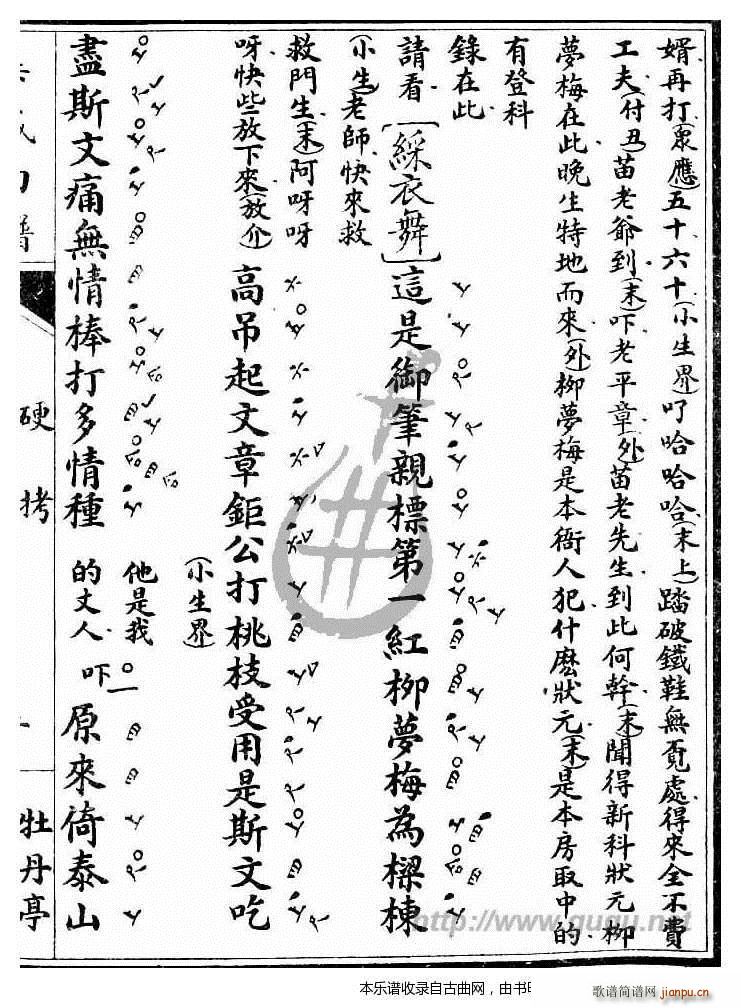 婿再打(衆應)五十六十(小生界)叮哈哈哈(末上)踏破鐵鞋無覓處得來全不費
工夫(付丑)苗老爺到(末)吓老平章(外)苗老先生到此何幹(末)聞得新科狀元柳
夢梅在此晚生特地而來(外)柳夢梅是本衙人犯什麽狀元(末)是本房取中的
有登科
錄在此
請看[綵衣舞]這是御筆親標第一紅柳夢梅為樑棟
(小生)老師快來救
救門生(末)阿呀呀
呀快些放下來(放介)高吊起文章鉅公打桃枝受用是斯文吃
(小生界)
盡斯文痛無情棒打多情種
他是我
的丈人
吓原來倚泰山
硬拷
牡丹亭
http://www.guqu.net
本乐谱收录自古曲网，由书
歌谱简谱网
jianpu.cn